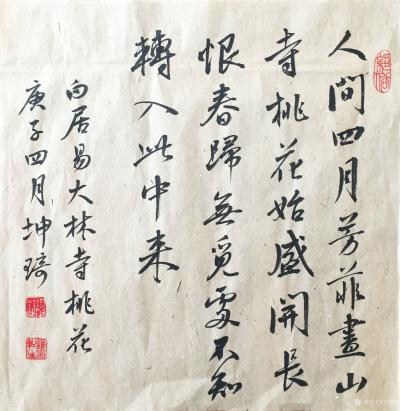 人間四月芳菲盡山
寺桃花始盛開長
恨春歸無覓處不知
轉入此中来
白居易大林寺桃花
庚子四月坤琦